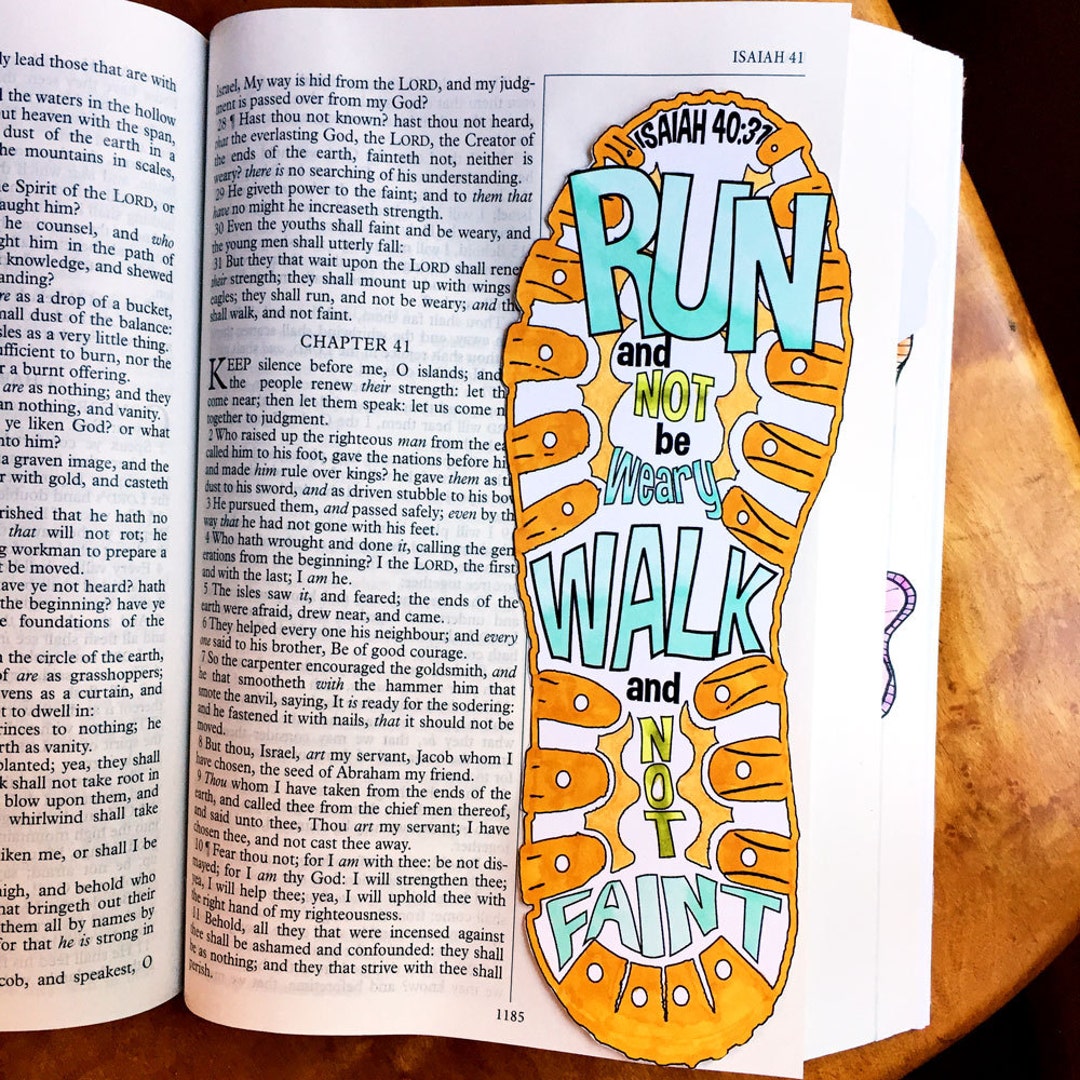 ly lead those that are with
the waters in the hollow
out heaven with the span,
dust of the earth in a
he mountains in scales,
e Spirit of the LORD, or
aught him?
he counsel, and who
ght him in the path of
knowledge, and shewed
anding?
re as a drop of a bucket,
mall dust of the balance:
sles as a very little thing.
ufficient to burn, nor the
r a burnt offering.
are as nothing; and they
an nothing, and vanity.
ye liken God? or what
nto him?
a graven image, and the
r with gold, and casteth
rished that he hath no
that will not rot; he
g workman to prepare a
t be moved.
ave ye not heard? hath
the beginning? have ye
e foundations of the
n the circle of the earth,
of are as grasshoppers;
vens as a curtain, and
t to dwell in:
rinces to nothing; he
rth as vanity.
planted; yea, they shall
k shall not take root in
blow upon them, and
whirlwind shall take
iken me, or shall I be
high, and behold who
hat bringeth out their
them all by names by
for that he is strong in
cob, and speakest, O
ISAIAH 41
Israel, My way is hid from the LORD, and my judg-
ment is passed over from my God?
28 ¶ Hast thou not known? hast thou not heard,
that the everlasting God, the LORD, the Creator of
the ends of the earth, fainteth not, neither is
weary? there is no searching of his understanding.
29 He giveth power to the faint; and to them that
have no might he increaseth strength.
30 Even the youths shall faint and be weary, and
the young men shall utterly fall:
31 But they that wait upon the LORD shall rene
their strength; they shall mount up with wings
eagles; they shall run, and not be weary; and th
shall walk, and not faint.
CHAPTER 41
KEEP silence before me, O islands; and
the people renew their strength: let th
come near; then let them speak: let us come n
together to judgment.
2 Who raised up the righteous man from the ea
called him to his foot, gave the nations before hi
and made him rule over kings? he gave them as t
dust to his sword, and as driven stubble to his bow
3 He pursued them, and passed safely; even by th
way that he had not gone with his feet.
4 Who hath wrought and done it, calling the gen
erations from the beginning? I the LORD, the first
and with the last; I am he.
5 The isles saw it, and feared; the ends of the
earth were afraid, drew near, and came.
6 They helped every one his neighbour; and every
one said to his brother, Be of good courage.
7 So the carpenter encouraged the goldsmith, and
he that smootheth with the hammer him that
smote the anvil, saying, It is ready for the sodering:
and he fastened it with nails, that it should not be
moved.
8 But thou, Israel, art my servant, Jacob whom I
have chosen, the seed of Abraham my friend.
9 Thou whom I have taken from the ends of the
earth, and called thee from the chief men thereof,
and said unto thee, Thou art my servant; I have
chosen thee, and not cast thee away.
10 ¶ Fear thou not; for I am with thee: be not dis-
mayed; for I am thy God: I will strengthen thee;
yea, I will help thee; yea, I will uphold thee with
the right hand of my righteousness.
11 Behold, all they that were incensed against
thee shall be ashamed and confounded: they shall
be as nothing; and they that strive with thee shall
perish.
1185
ISAIAH 40:31
RUN
and
NOT
be
Weary
WALK
and
NOT
FAINT